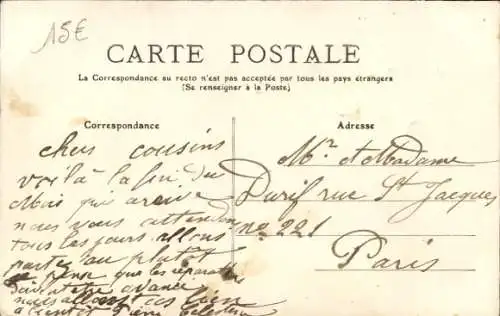 15€
CARTE POSTALE
La Correspondance au recto n'est pas acceptée par tous les pays étrangers
(Se renseigner à la Poste)
Correspondance
chers cousins
voilà la fin du
Mois qui arrive
nous vous attendon
tous les jours allons
partez au plutôt
je pense que les réparations
doivent etre avancé
nous allons
Adresse
Mr et Madame
Durif rue St Jacques
no 221
Paris